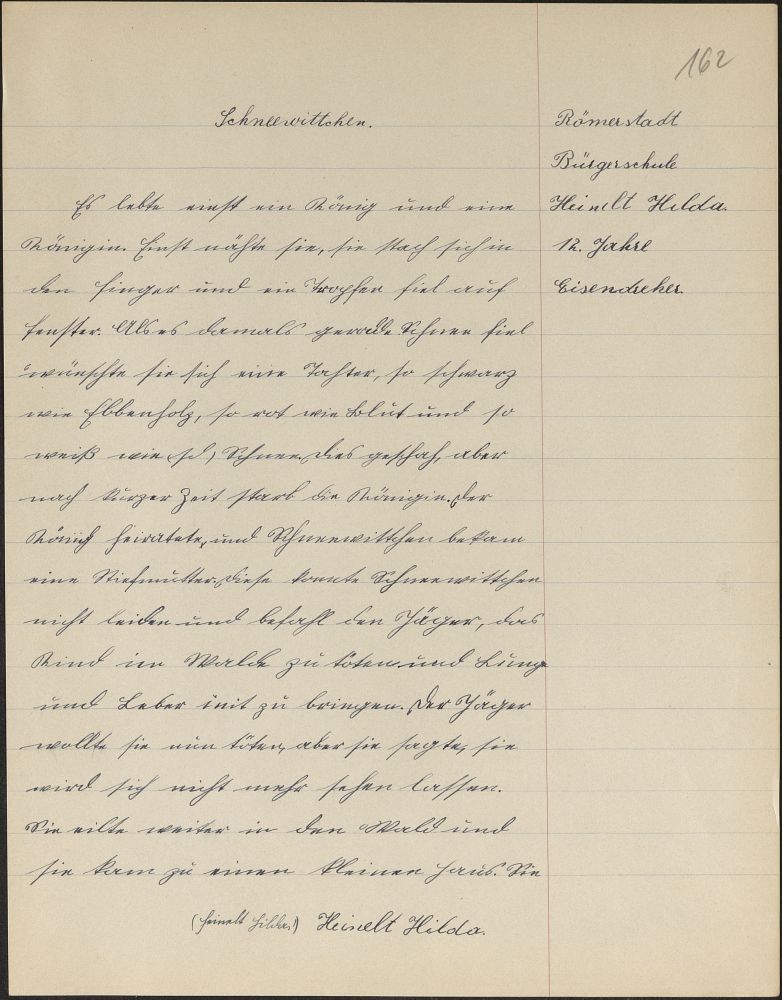 162
Schneewittchen.
Römerstadt
Bürgerschule
Heinelt Hilda.
12. Jahre
Eisendreher.
Es lebte einst ein König und eine
Königin. Einst nähte sie, sie stach sich in
den Finger und ein Tropfen fiel auf
Fenster. Als es damals gerade Schnee fiel
wünschte sie sich eine Tochter, so schwarz
wie Ebbenholz, so rot wie Blut und so
weiß wie Schnee. Dies geschah, aber
nach kurzer Zeit starb die Königin. Der
König heiratete, und Schneewittchen bekam
eine Stiefmutter. Diese konnte Schneewittchen
nicht leiden und befahl den Jäger, das
Kind im Walde zu töten und Lunge
und Leber mit zu bringen. Der Jäger
wollte sie nun töten, aber sie sagte, sie
wird sich nicht mehr sehen lassen.
Sie eilte weiter in den Wald und
sie kam zu einen kleinen Haus. Sie
(Heinelt Hilda.) Heinelt Hilda.